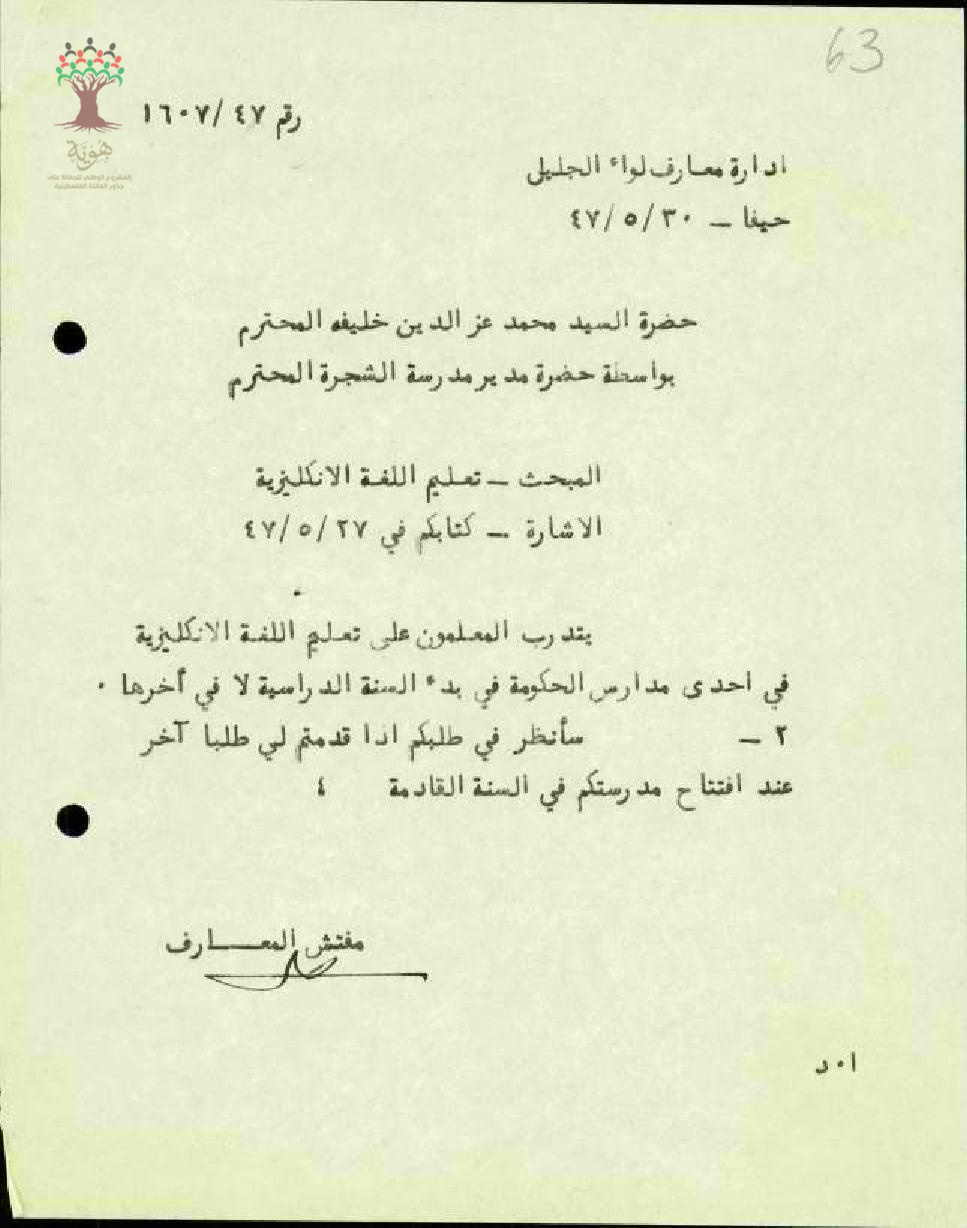 63
هوية
المشروع الوطني للحفاظ على
جذور العائلة الفلسطينية
رقم ٤٧/ ١٦٠٧
ادارة معارف لواء الجليل
حيفا – ٤٧/٥/٣٠
حضرة السيد محمد عز الدين خليفه المحترم
بواسطة حضرة مدير مدرسة الشجرة المحترم
المبحث – تعليم اللغة الانكليزية
الاشارة – كتابكم في ٤٧/٥/٢٧
يتدرب المعلمون على تعليم اللغة الانكليزية
في احدى مدارس الحكومة في بدء السنة الدراسية لا في أخرها ٠
٢ – سأنظر في طلبكم اذا قدمتم لي طلبا آخر
عند افتتاح مدرستكم في السنة القادمة ٤
مفتش المعـــارف
ا٠د